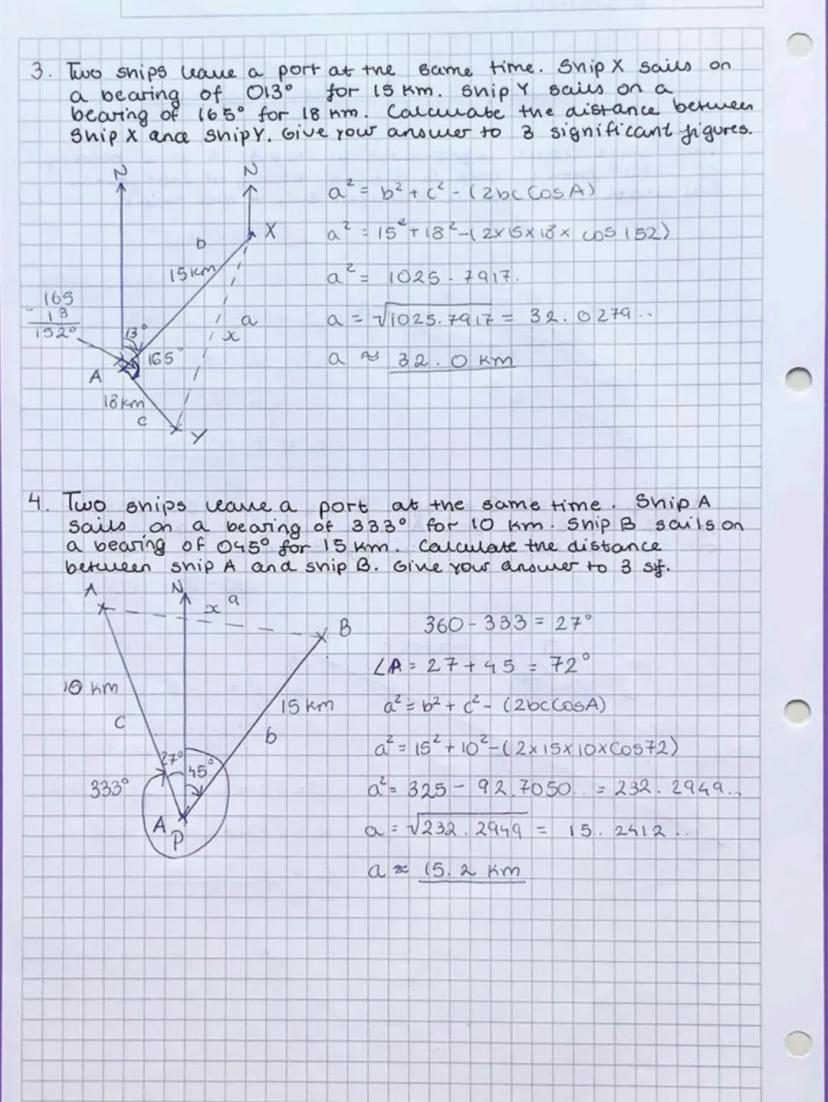 3. Two ships leave a port at the same time. Ship X sails on
a bearing of 013° for 15 km. Ship Y sails on a
bearing of 165° for 18 km. Calculate the distance between
Ship X and Ship Y. Give your answer to 3 significant figures.
N
N
X
b
15km
165
- 13
152°
13°
165°
a
x
A
18km
c
Y
a² = b² + c² - (2bc CosA)
a² = 15² + 18² - (2×15×18× cos 152)
a² = 1025.7917.
a = √1025.7917 = 32.0279..
a ≈ 32.0 km
4. Two ships leave a port at the same time. Ship A
sails on a bearing of 333° for 10 km. Ship B sails on
a bearing of 045° for 15 km. Calculate the distance
between ship A and ship B. Give your answer to 3 sf.
A
N
x a
B
10 km
c
15 km
b
27°
45°
333°
A
P
360 - 333 = 27°
∠A = 27 + 45 = 72°
a² = b² + c² - (2bcCosA)
a² = 15² + 10² - (2×15×10×Cos72)
a² = 325 - 92.7050.. = 232.2949..
a = √232.2949 = 15.2412..
a ≈ 15.2 km